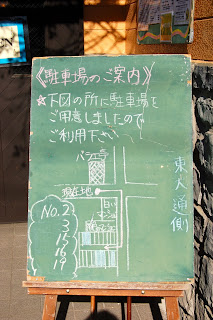 《駐車場のご案内》
☆下図の所に駐車場を
ご用意しましたので
ご利用下さい
現在地
東大通側
No. 2
3
15
16
19